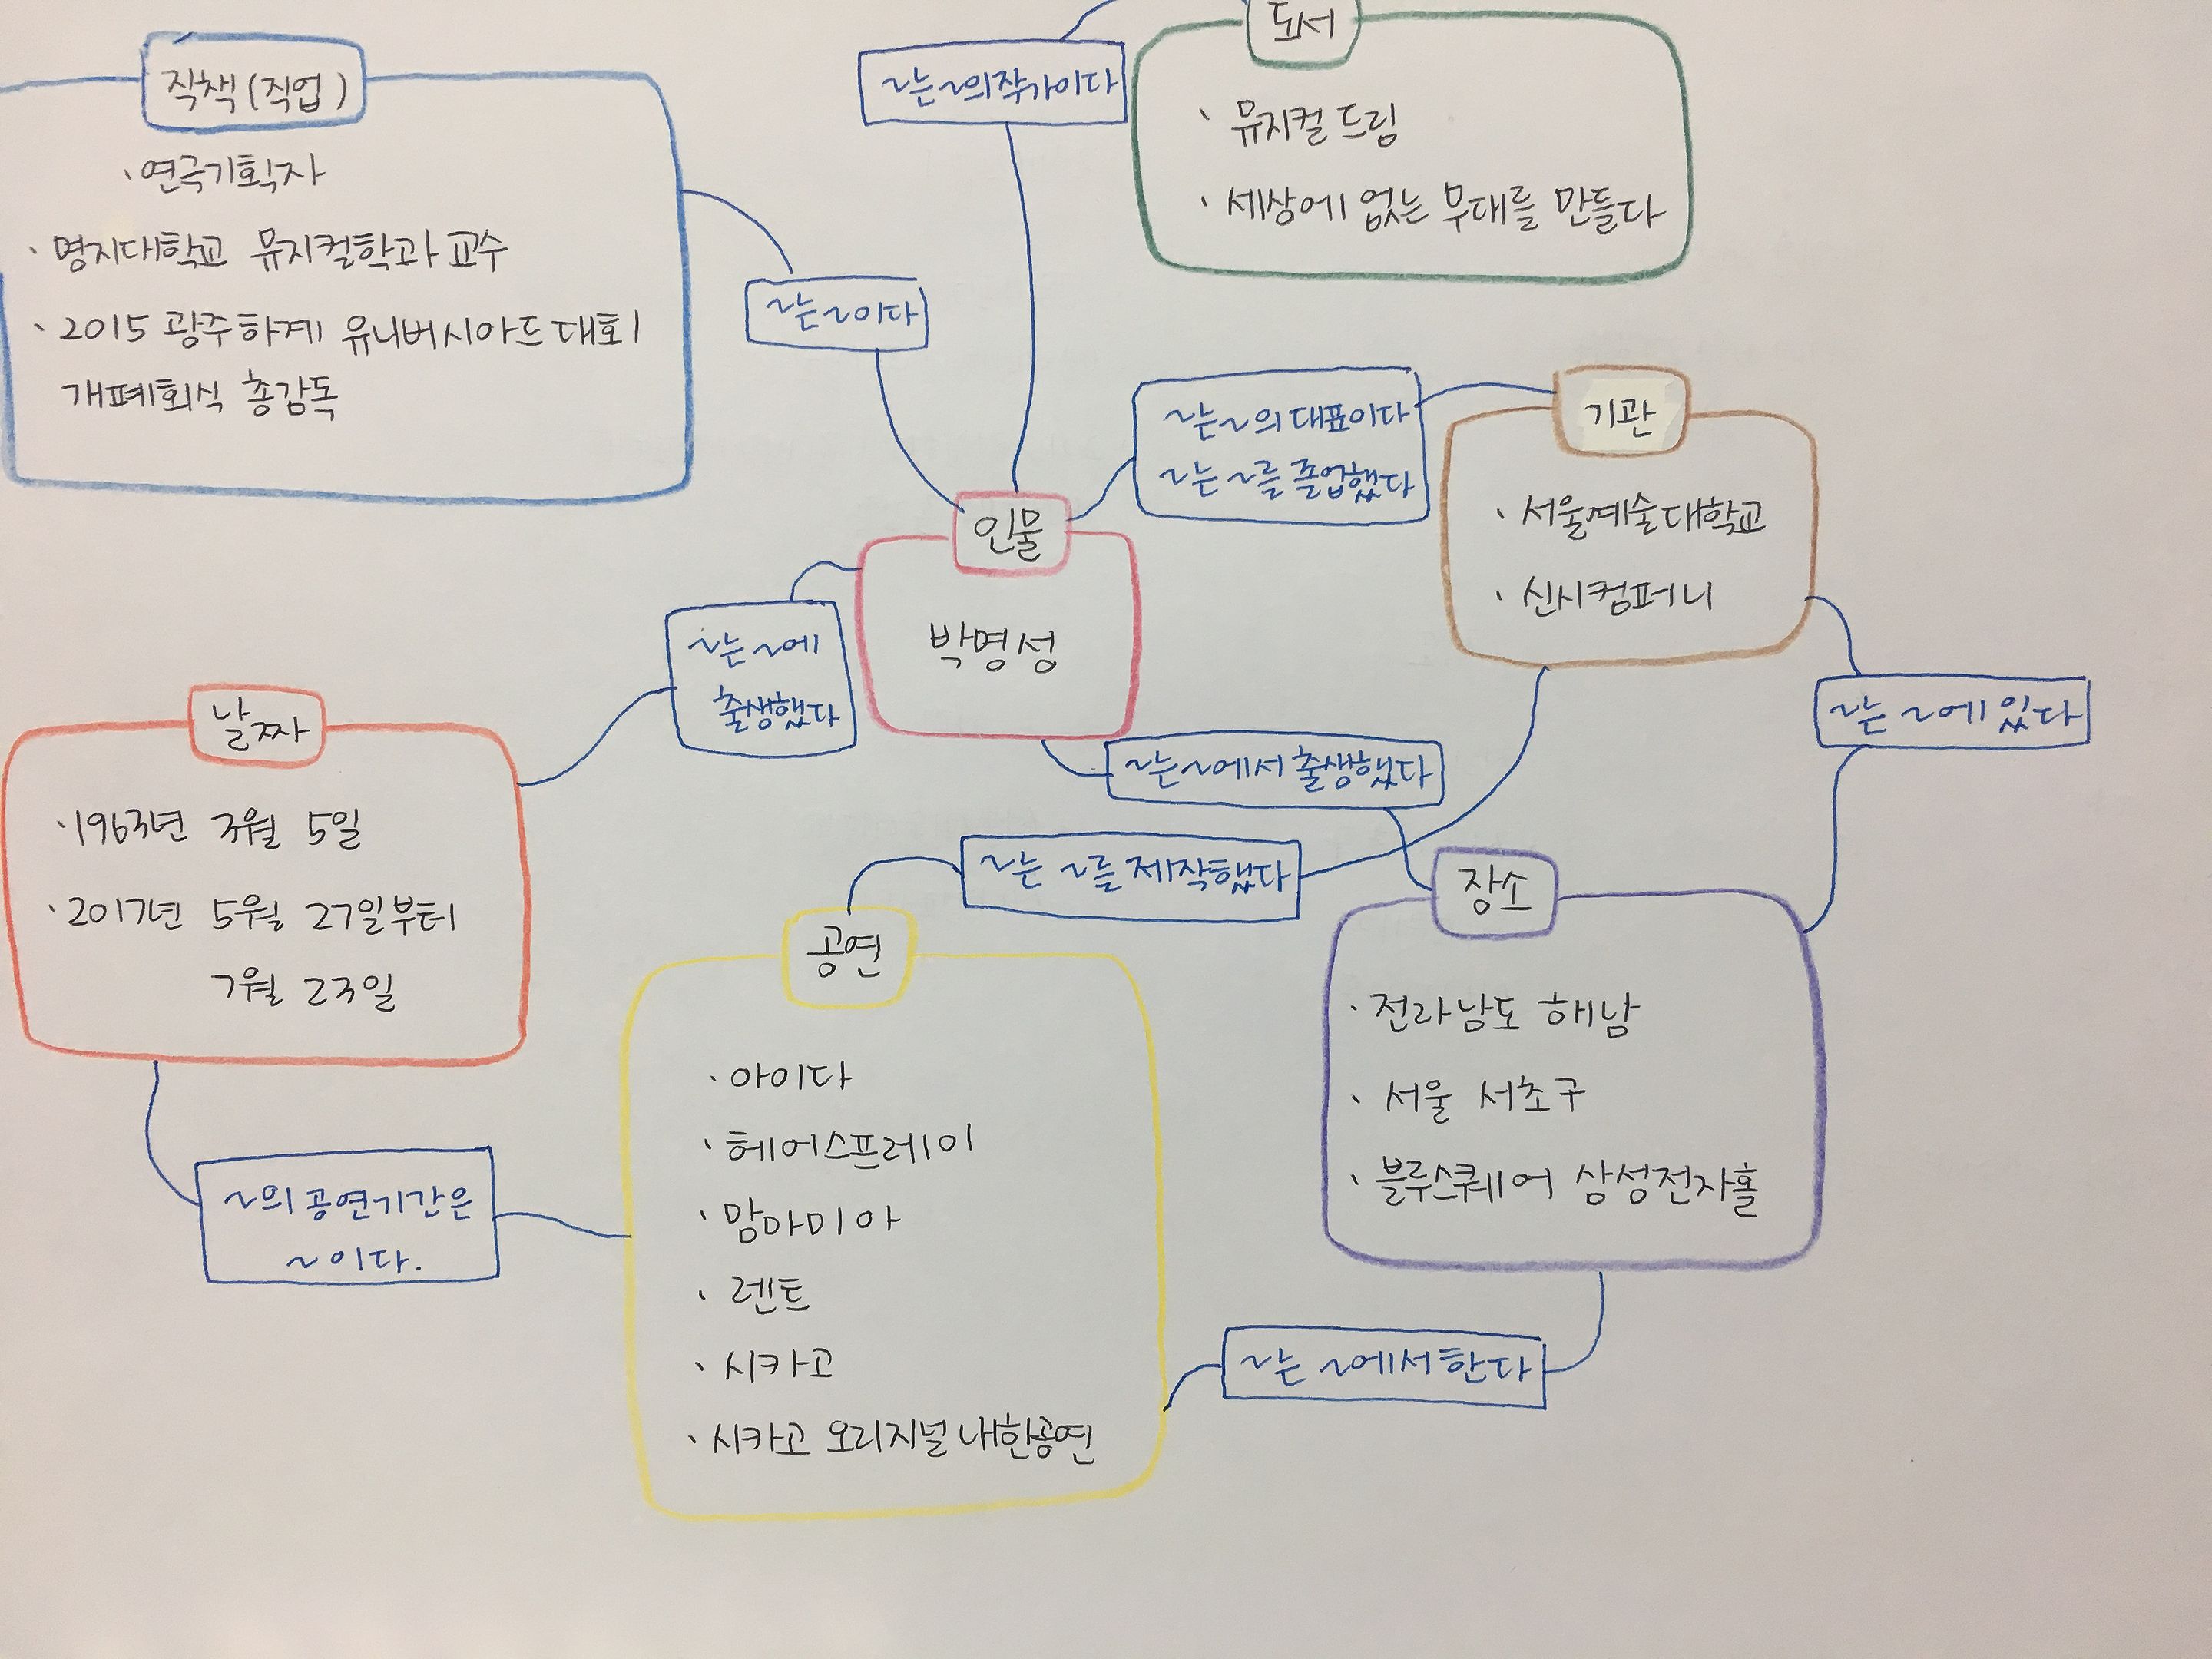 직책(직업)
· 연극기획자
· 명지대학교 뮤지컬학과 교수
· 2015 광주하계 유니버시아드대회
개폐회식 총감독
~는 ~의 작가이다
도서
· 뮤지컬 드림
· 세상에 없는 무대를 만들다
~는 ~이다
~는 ~의 대표이다
~는 ~를 졸업했다
기관
· 서울예술대학교
· 신시컴퍼니
인물
박명성
~는 ~에
출생했다
~는 ~에 있다
날짜
· 1963년 3월 5일
· 2017년 5월 27일부터
7월 23일
~는 ~에서 출생했다
~는 ~를 제작했다
장소
· 전라남도 해남
· 서울 서초구
· 블루스퀘어 삼성전자홀
공연
· 아이다
· 헤어스프레이
· 맘마미아
· 렌트
· 시카고
· 시카고 오리지널 내한공연
~의 공연기간은
~이다.
~는 ~에서 한다